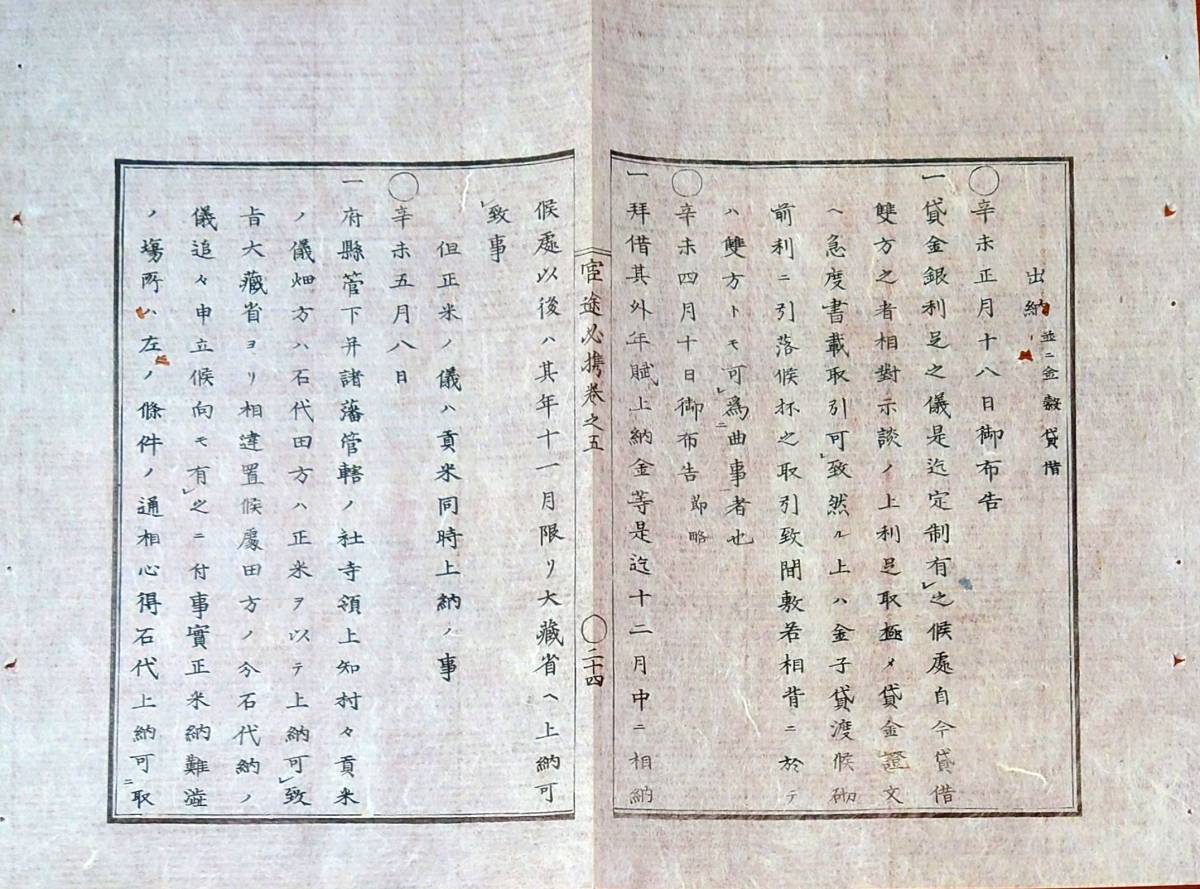 出納 並ニ金穀貸借
◯辛未正月十八日御布告
一貸金銀利足之儀是迄定制有レ之候處自今貸借
雙方之者相對示談ノ上利足取極メ貸金證文
ヘ急度書載取引可レ致然ル上ハ金子貸渡候砌
前利ニ引落候抔之取引致間敷若相背ニ於テ
ハ雙方トモ可レ為二曲事者也
◯辛未四月十日御布告 節略
一拜借其外年賦上納金等是迄十二月中ニ相納
宦途必携巻之五 ◯二十四
候處以後ハ其年十一月限リ大藏省ヘ上納可
レ致事
但正米ノ儀ハ貢米同時上納ノ事
◯辛未五月八日
一府縣管下并諸藩管轄ノ社寺領上知村々貢米
ノ儀畑方ハ石代田方ハ正米ヲ以テ上納可レ致
旨大藏省ヨリ相達置候處田方ノ分石代納ノ
儀追々申立候向モ有レ之ニ付事實正米納難澁
ノ場所ハ左ノ條件ノ通相心得石代上納可二取